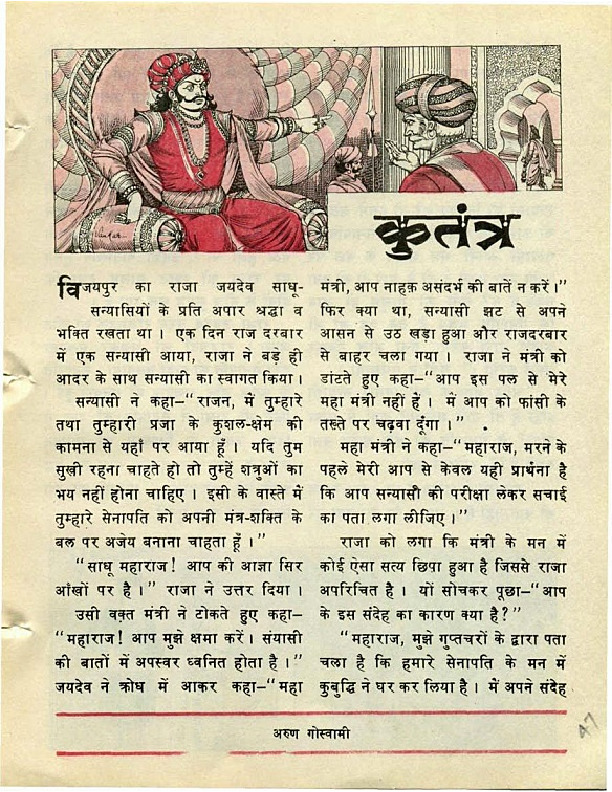 कुतंत्र
विजयपुर का राजा जयदेव साधू-
सन्यासियों के प्रति अपार श्रद्धा व
भक्ति रखता था । एक दिन राज दरबार
में एक सन्यासी आया, राजा ने बड़े ही
आदर के साथ सन्यासी का स्वागत किया ।
सन्यासी ने कहा–“राजन, में तुम्हारे
तथा तुम्हारी प्रजा के कुशल-क्षेम की
कामना से यहाँ पर आया हूँ । यदि तुम
सुखी रहना चाहते हो तो तुम्हें शत्रुओं का
भय नहीं होना चाहिए । इसी के वास्ते में
तुम्हारे सेनापति को अपनी मंत्र-शक्ति के
बल पर अजेय बनाना चाहता हूँ ।”
“साधू महाराज! आप की आज्ञा सिर
आँखों पर है ।” राजा ने उत्तर दिया ।
उसी वक़्त मंत्री ने टोकते हुए कहा–
“महाराज! आप मुझे क्षमा करें । संयासी
की बातों में अपस्वर ध्वनित होता है ।”
जयदेव ने क्रोध में आकर कहा–“महा
मंत्री, आप नाहक़ असंदर्भ की बातें न करें ।”
फिर क्या था, सन्यासी झट से अपने
आसन से उठ खड़ा हुआ और राजदरबार
से बाहर चला गया । राजा ने मंत्री को
डांटते हुए कहा–“आप इस पल से मेरे
महा मंत्री नहीं हैं । में आप को फांसी के
तख्ते पर चढ़वा दूँगा ।”
महा मंत्री ने कहा–“महाराज, मरने के
पहले मेरी आप से केवल यही प्रार्थना है
कि आप सन्यासी की परीक्षा लेकर सचाई
का पता लगा लीजिए ।”
राजा को लगा कि मंत्री के मन में
कोई ऐसा सत्य छिपा हुआ है जिससे राजा
अपरिचित है । यों सोचकर पूछा–“आप
के इस संदेह का कारण क्या है?”
“महाराज, मुझे गुप्तचरों के द्वारा पता
चला है कि हमारे सेनापति के मन में
कुबुद्धि ने घर कर लिया है । में अपने संदेह
अरुण गोस्वामी
47